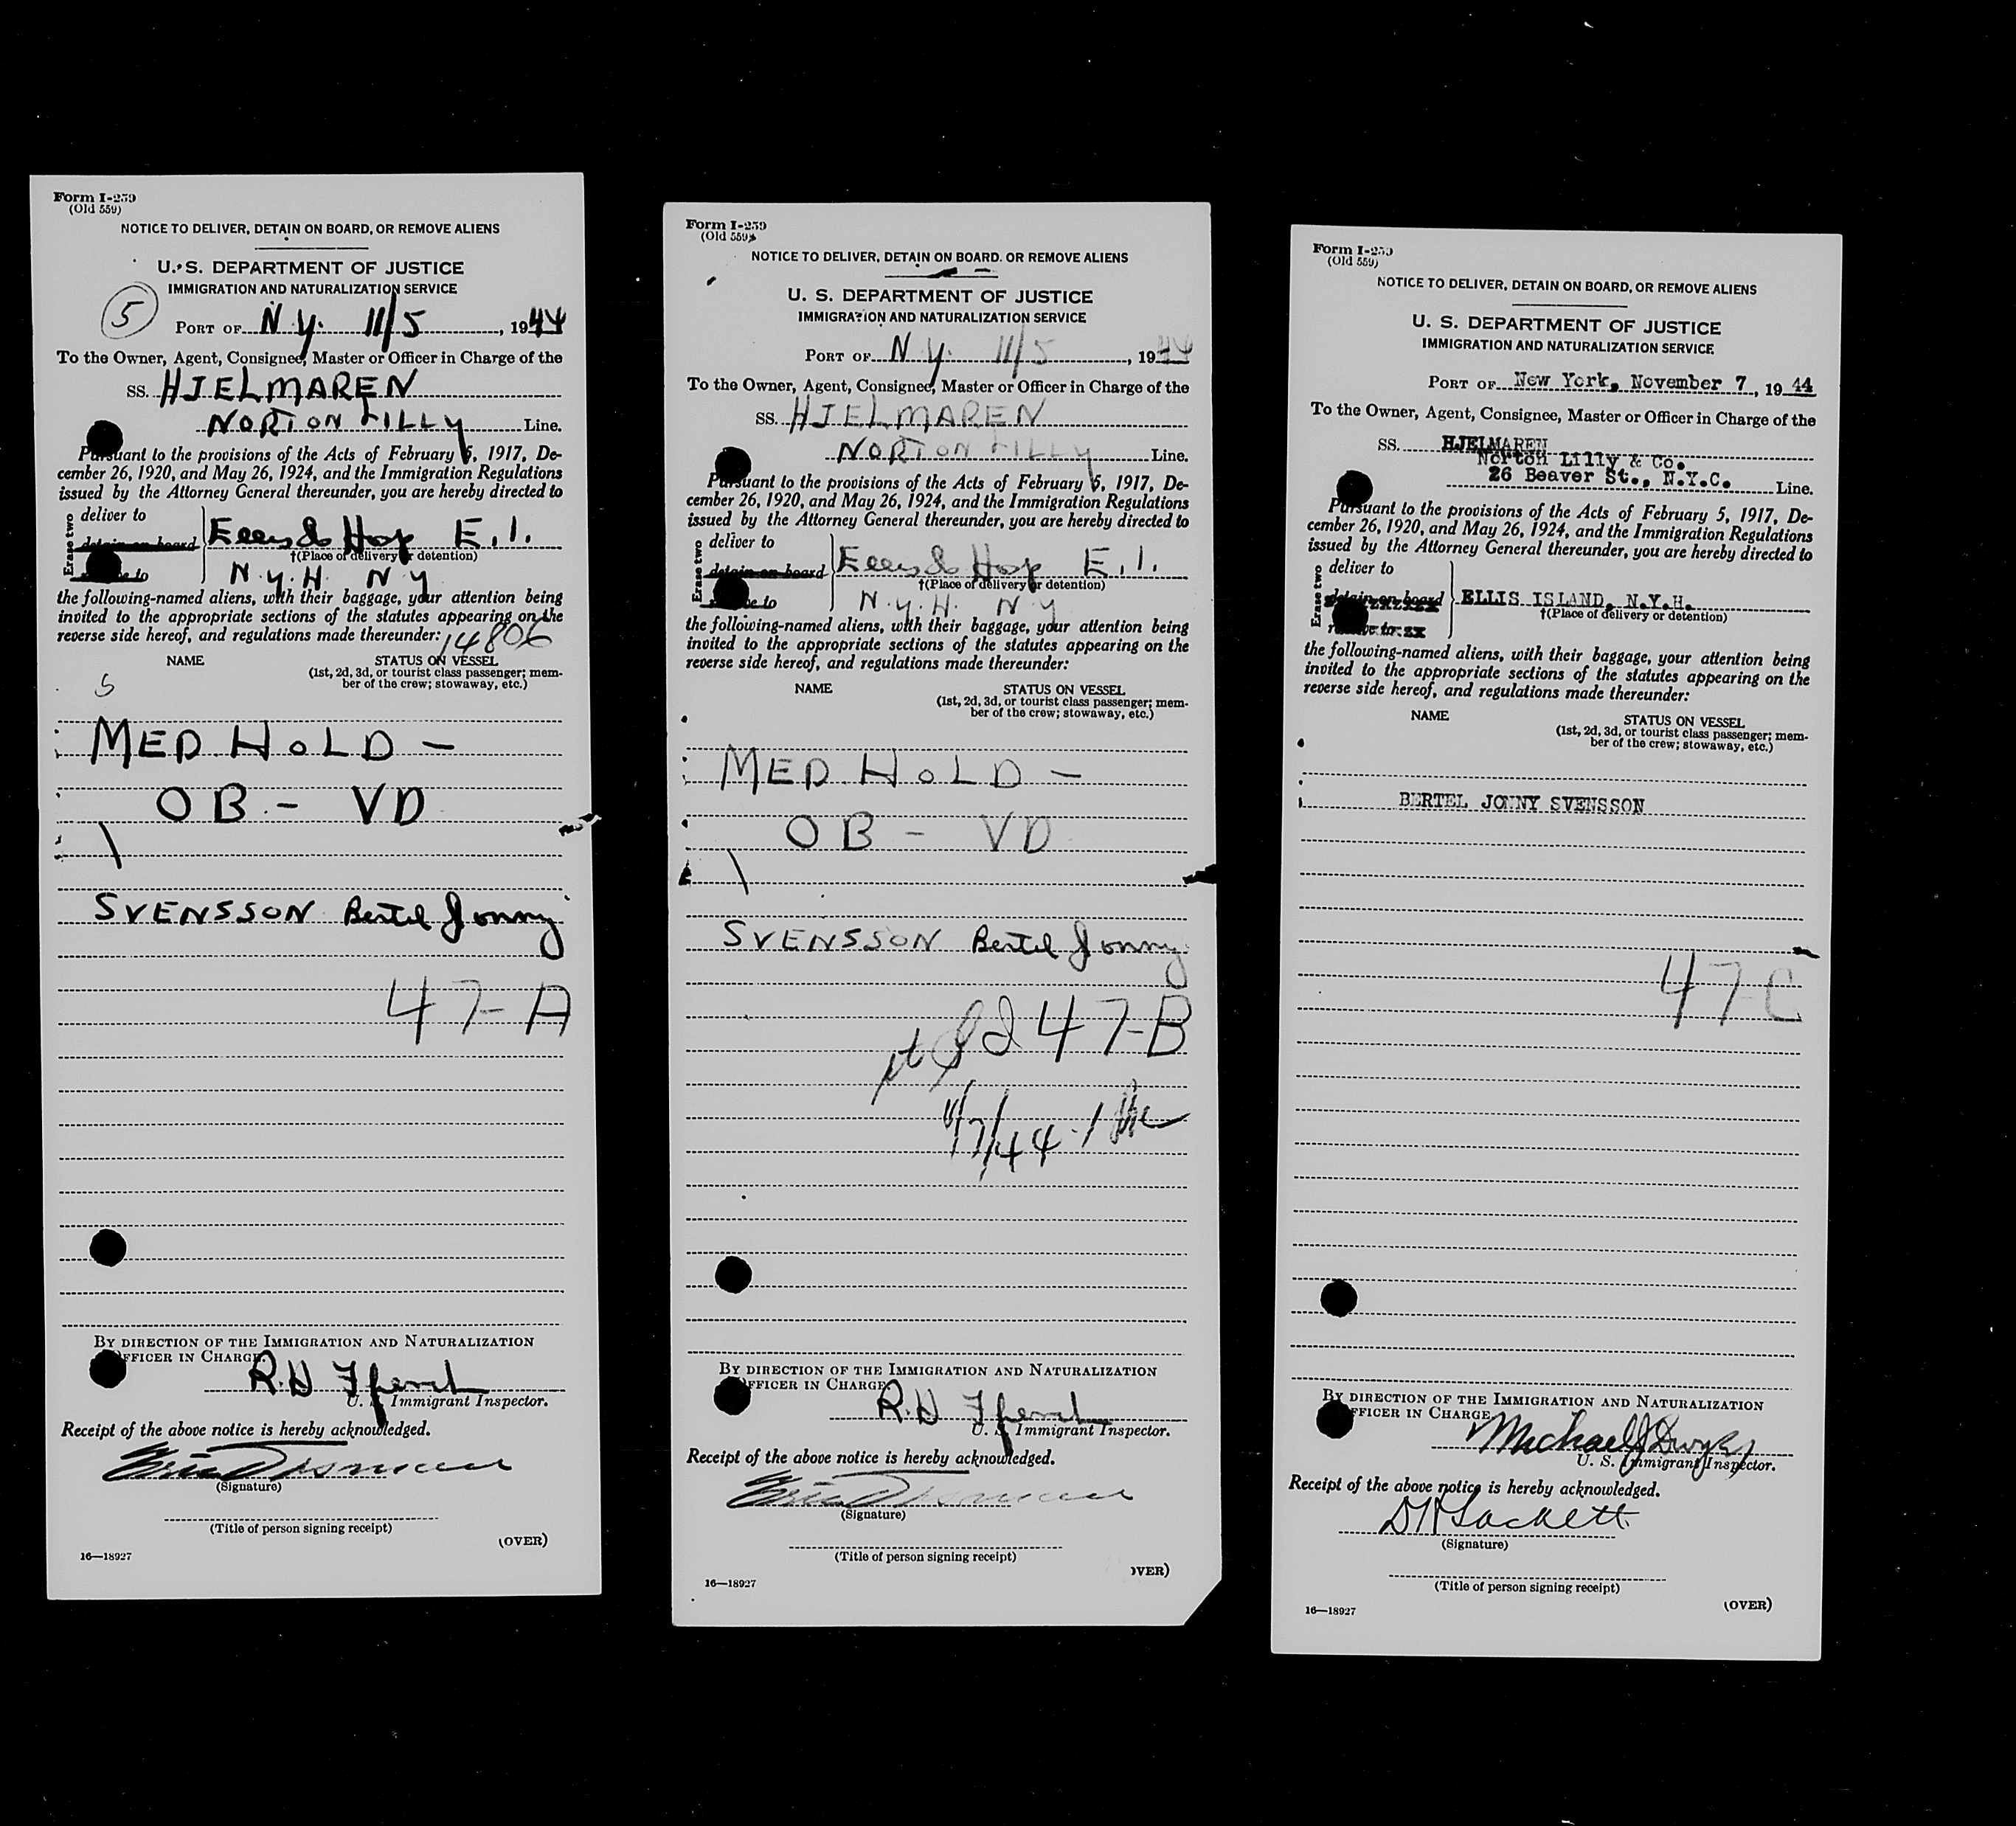 Form I-259
(Old 559)
NOTICE TO DELIVER, DETAIN ON BOARD, OR REMOVE ALIENS
U. S. DEPARTMENT OF JUSTICE
IMMIGRATION AND NATURALIZATION SERVICE
5
PORT OF N.Y. 11/5, 1944
To the Owner, Agent, Consignee, Master or Officer in Charge of the
SS. HJELMAREN
NORTON LILLY Line.
Pursuant to the provisions of the Acts of February 5, 1917, De-
cember 26, 1920, and May 26, 1924, and the Immigration Regulations
issued by the Attorney General thereunder, you are hereby directed to
Erase two
deliver to
detain on board
E.I.
†(Place of delivery or detention)
to
N.Y.H. N.Y
the following-named aliens, with their baggage, your attention being
invited to the appropriate sections of the statutes appearing on the
reverse side hereof, and regulations made thereunder: 14806
NAME STATUS ON VESSEL
(1st, 2d, 3d, or tourist class passenger; mem-
ber of the crew; stowaway, etc.)
MED HOLD -
OB - VD
SVENSSON Bertel Jonny
47-A
BY DIRECTION OF THE IMMIGRATION AND NATURALIZATION
OFFICER IN CHARGE
R.H
U. S. Immigrant Inspector.
Receipt of the above notice is hereby acknowledged.
(Signature)
(Title of person signing receipt)
(OVER)
16—18927
Form I-259
(Old 559)
NOTICE TO DELIVER, DETAIN ON BOARD, OR REMOVE ALIENS
U. S. DEPARTMENT OF JUSTICE
IMMIGRATION AND NATURALIZATION SERVICE
PORT OF N.Y. 11/5, 1944
To the Owner, Agent, Consignee, Master or Officer in Charge of the
SS. HJELMAREN
NORTON LILLY Line.
Pursuant to the provisions of the Acts of February 5, 1917, De-
cember 26, 1920, and May 26, 1924, and the Immigration Regulations
issued by the Attorney General thereunder, you are hereby directed to
Erase two
deliver to
detain on board
E.I.
†(Place of delivery or detention)
to
N.Y.H. N.Y
the following-named aliens, with their baggage, your attention being
invited to the appropriate sections of the statutes appearing on the
reverse side hereof, and regulations made thereunder:
NAME STATUS ON VESSEL
(1st, 2d, 3d, or tourist class passenger; mem-
ber of the crew; stowaway, etc.)
MED HOLD -
OB - VD
SVENSSON Bertel Jonny
47-B
11/7/44
BY DIRECTION OF THE IMMIGRATION AND NATURALIZATION
OFFICER IN CHARGE
R.H
U. S. Immigrant Inspector.
Receipt of the above notice is hereby acknowledged.
(Signature)
(Title of person signing receipt)
OVER)
16—18927
Form I-259
(Old 559)
NOTICE TO DELIVER, DETAIN ON BOARD, OR REMOVE ALIENS
U. S. DEPARTMENT OF JUSTICE
IMMIGRATION AND NATURALIZATION SERVICE
PORT OF New York, November 7, 1944
To the Owner, Agent, Consignee, Master or Officer in Charge of the
SS. HJELMAREN
Norton Lilly & Co.
26 Beaver St., N.Y.C. Line.
Pursuant to the provisions of the Acts of February 5, 1917, De-
cember 26, 1920, and May 26, 1924, and the Immigration Regulations
issued by the Attorney General thereunder, you are hereby directed to
Erase two
deliver to
detain on board
ELLIS ISLAND, N.Y.H.
†(Place of delivery or detention)
remove to xx
the following-named aliens, with their baggage, your attention being
invited to the appropriate sections of the statutes appearing on the
reverse side hereof, and regulations made thereunder:
NAME STATUS ON VESSEL
(1st, 2d, 3d, or tourist class passenger; mem-
ber of the crew; stowaway, etc.)
BERTEL JONNY SVENSSON
47-C
BY DIRECTION OF THE IMMIGRATION AND NATURALIZATION
OFFICER IN CHARGE
Michael J Dwyer
U. S. Immigrant Inspector.
Receipt of the above notice is hereby acknowledged.
Sackett
(Signature)
(Title of person signing receipt)
(OVER)
16—18927